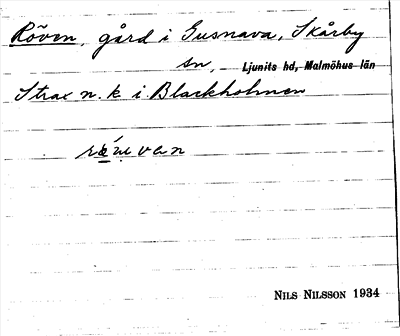 Röven, gård i Gusnava, Skårby
sn, Ljunits hd, Malmöhus län
Strax n. k. i Blackholmen
NILS NILSSON 1934